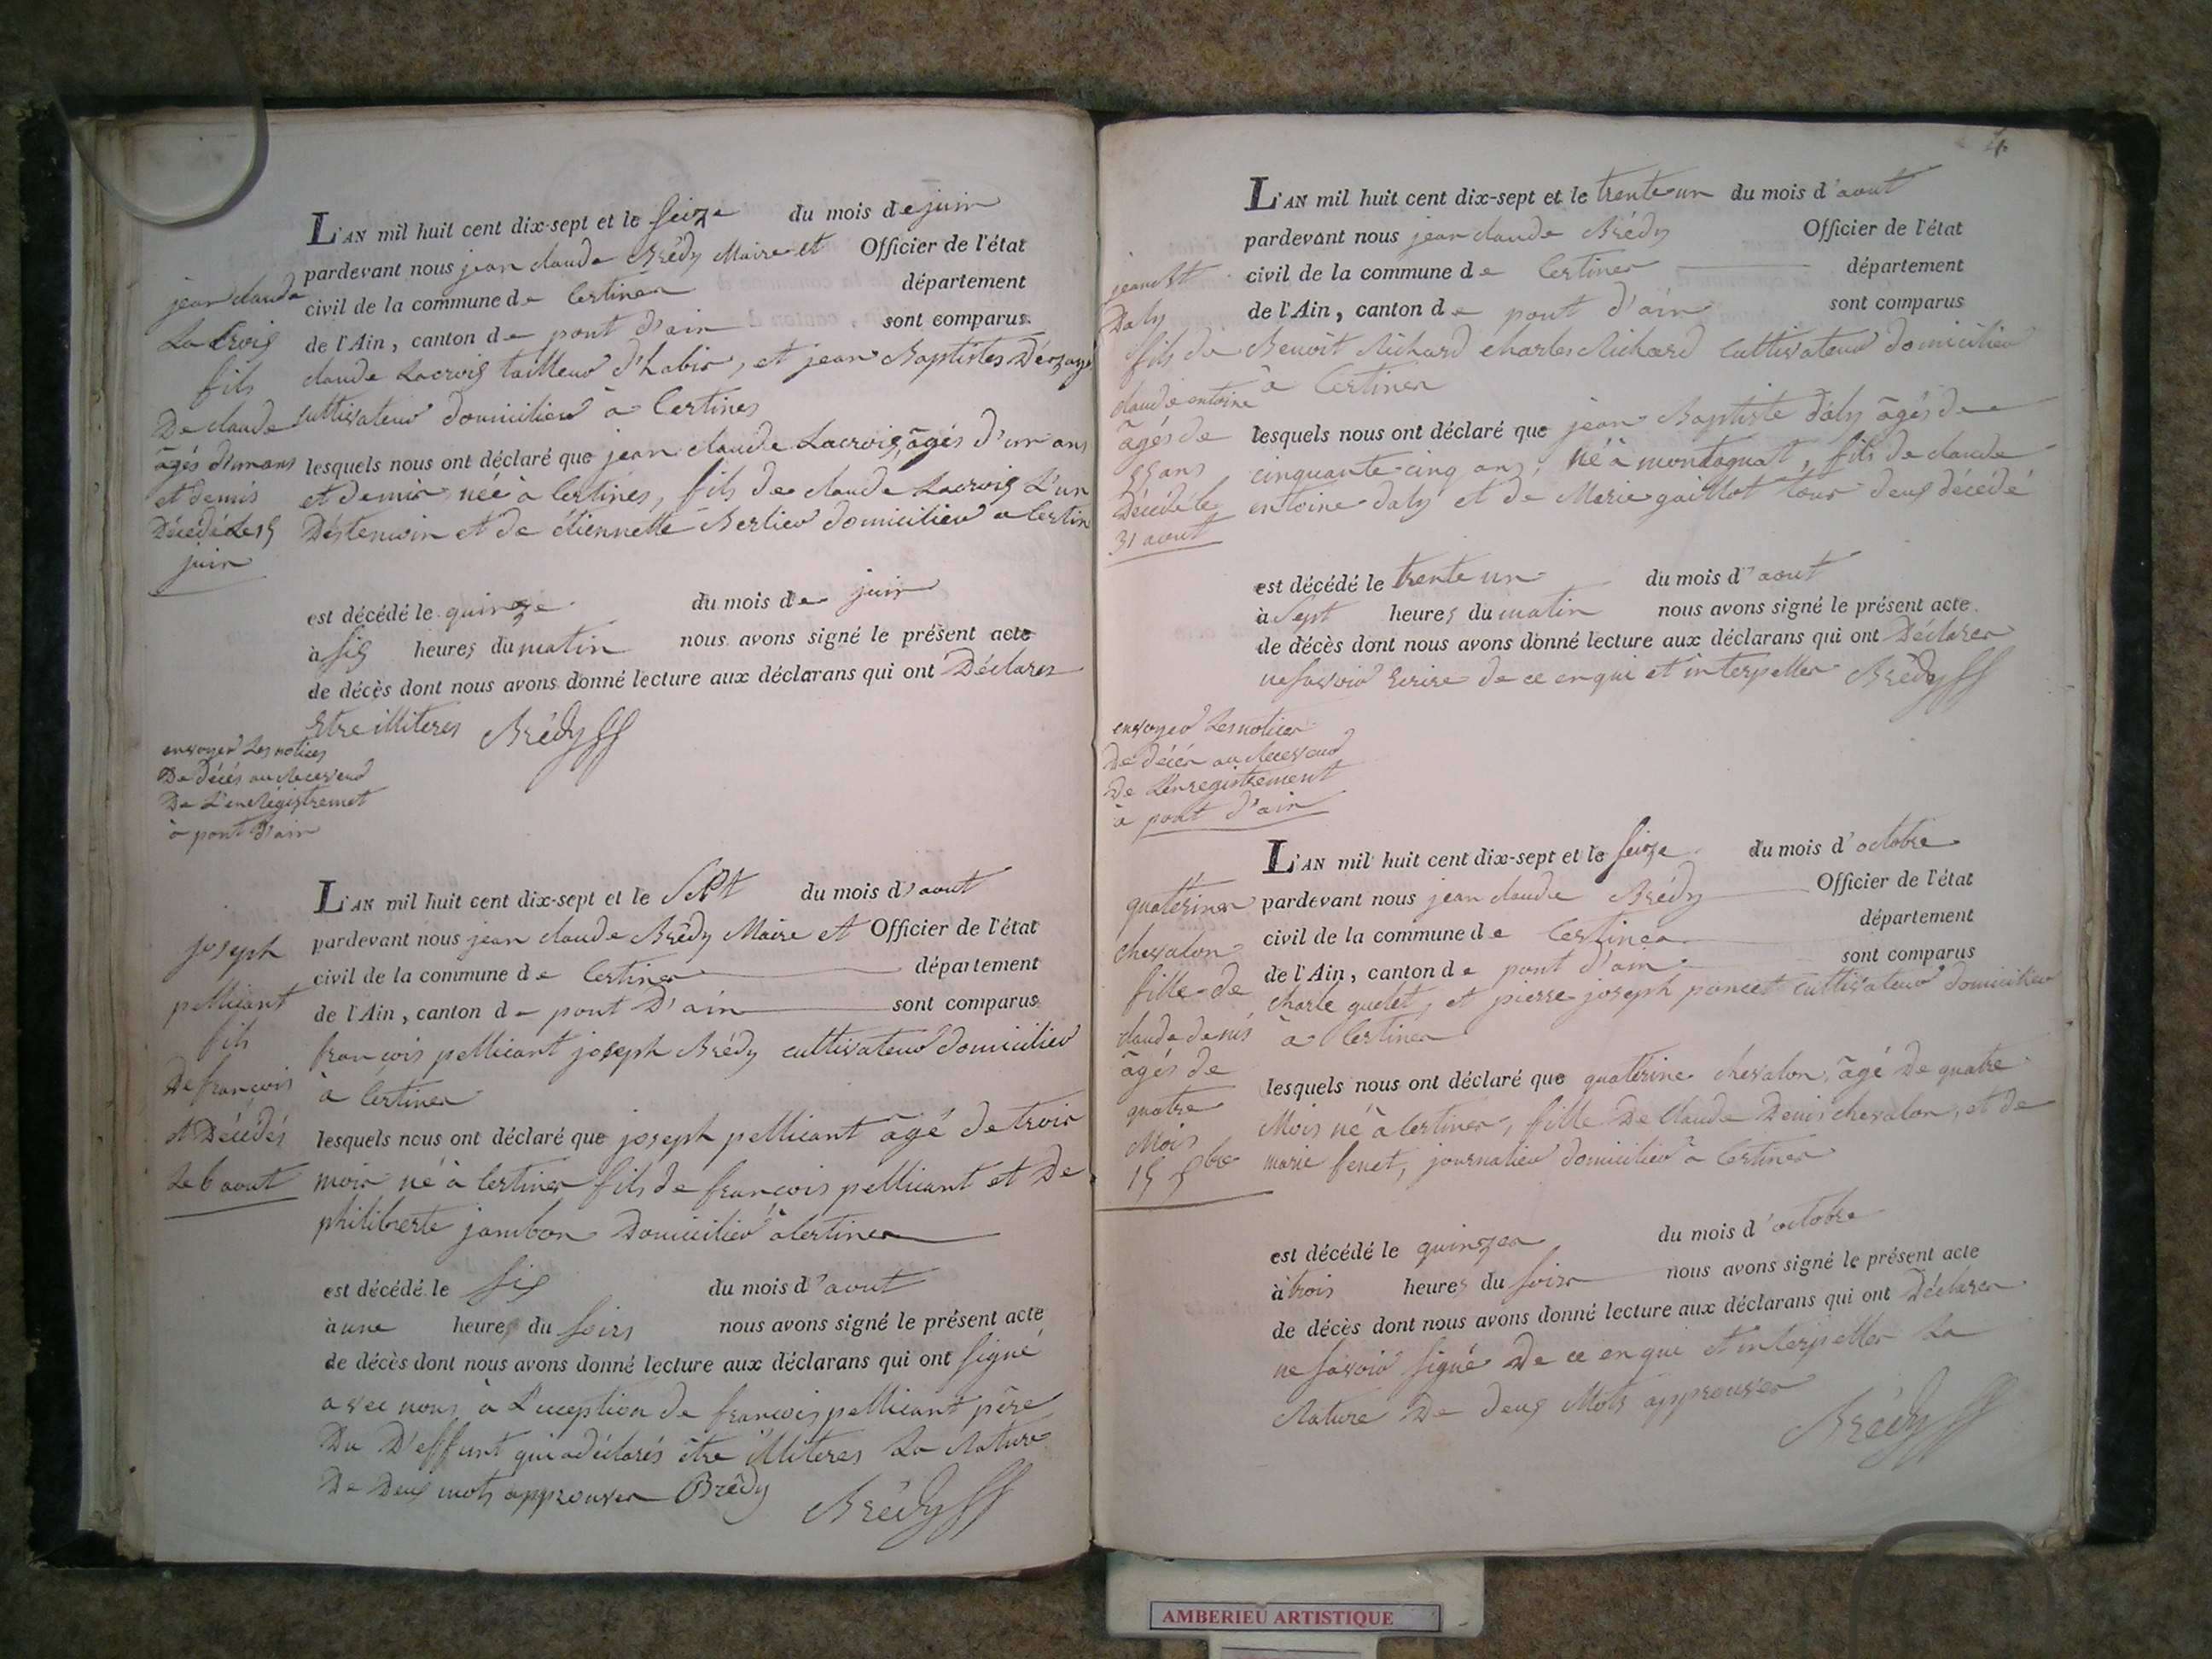 L'AN mil huit cent dix-sept et le seize du mois de juin
pardevant nous jean claude Brédy Maire et Officier de l'état
civil de la commune de Certines département
de l'Ain, canton de pont d'ain sont comparus
claude Lacroix tailleur d'habis, et jean Baptistes
cultivateur domicilier a Certines
lesquels nous ont déclaré que jean claude Lacroix, âgés d'un ans
et demis née à Certines, fils de claude Lacroix L'un
Des temoin et de étiennette Berlier domicilier a Certin
est décédé le quinze du mois de juin
à six heures du matin nous avons signé le présent acte
de décès dont nous avons donné lecture aux déclarans qui ont Déclares
Etre illiteres Brédy
jean claude
La Croix
fils
De claude
âgés d'un ans
et demis
Décédé Le 15
juin
envoyer Les notices
De décés au Receveur
De L'enregistremet
à pont d'ain
L'AN mil huit cent dix-sept et le sept du mois d'aout
pardevant nous jean claude Brédy Maire et Officier de l'état
civil de la commune de Certines département
de l'Ain, canton de pont D'ain sont comparus
françois pellicant joseph Brédy cultivateur domicilier
à Certines
lesquels nous ont déclaré que joseph pellicant agé de trois
mois né à Certines fils de françois pellicant et De
philiberte jambon Domicilier à Certines
est décédé le six du mois d'aout
à une heures du soirs nous avons signé le présent acte
de décès dont nous avons donné lecture aux déclarans qui ont signé
avec nous à L'eception de francois pellicant père
Du D'effunt qui a déclarés être illiteres La Rature
De Deux mots approuver Brédy
Brédy
joseph
pellicant
fils
De francois
et Décédés
Le 6 aout
4
L'AN mil huit cent dix-sept et le trente un du mois d'aout
pardevant nous jean claude Brédy Officier de l'état
civil de la commune de Certines département
de l'Ain, canton de pont d'ain sont comparus
Benoit Richard charles Richard cultivateur domicilier
à Certines
lesquels nous ont déclaré que jean Baptiste daly âgés de
cinquante-cinq ans, né à montagnat, fils de claude
entoine daly et de Marie gaillot tous deux décédé
est décédé le trente un du mois d'aout
à sept heures du matin nous avons signé le présent acte
de décès dont nous avons donné lecture aux déclarans qui ont Déclarer
ne savoir Ecrire de ce enqui et interpeller Brédy
jean Bt
Daly
fils de
claude entoine
âgés de
55 ans
Décédé le
31 aout
envoyer Les notices
De décés au Receveur
De L'enregistrement
à pont d'ain
L'AN mil huit cent dix-sept et le seize du mois d'octobre
pardevant nous jean claude Brédy Officier de l'état
civil de la commune de Certines département
de l'Ain, canton de pont d'ain sont comparus
charle quelet, et pierre joseph poncet cultivateur domicilier
à Certines
lesquels nous ont déclaré que quaterine chevalon, âgé De quatre
Mois né à Certines, fille De Claude Denis chevalon, et de
marie fenet, journalier domicilier à Certines
est décédé le quinzes du mois d'octobre
à trois heures du soirs nous avons signé le présent acte
de décès dont nous avons donné lecture aux déclarans qui ont Déclarer
ne savoir signé De ce enqui et interpeller La
Rature De deux Mots approuver
Brédy
quaterines
chevalon
fille de
claude denis
âgés de
quatre
Mois
AMBERIEU ARTISTIQUE